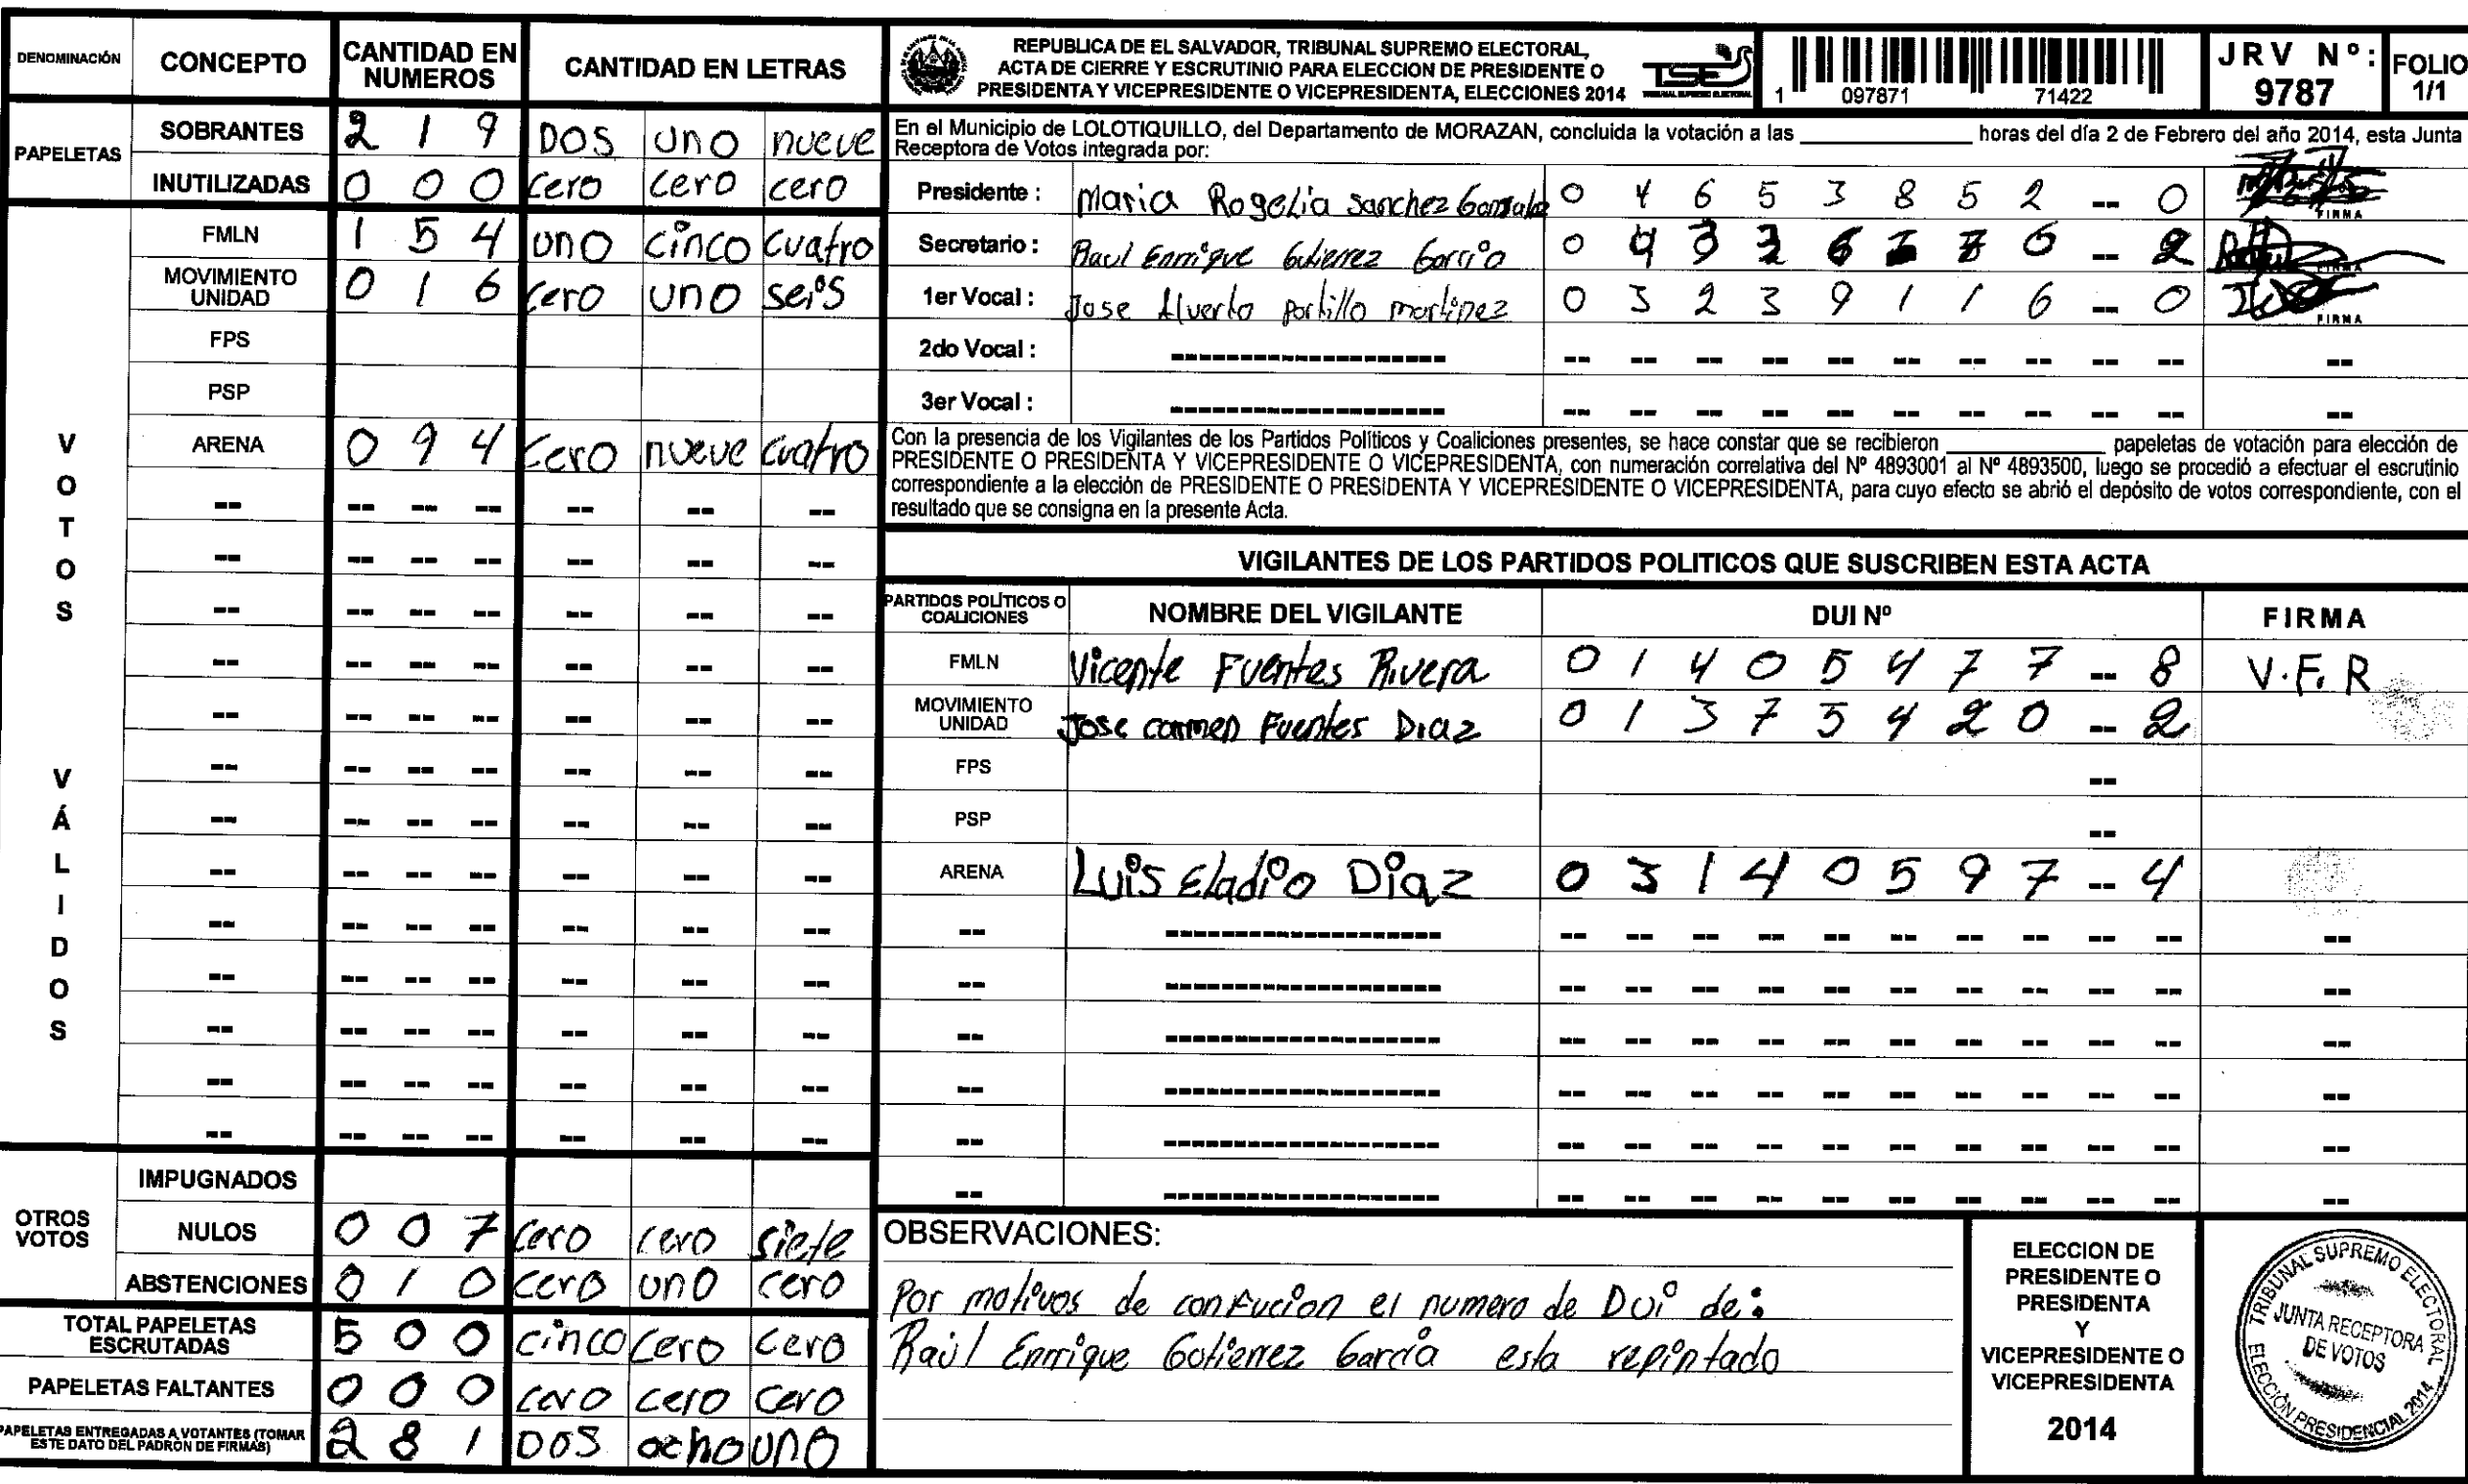 DENOMINACIÓN CONCEPTO CANTIDAD EN NUMEROS CANTIDAD EN LETRAS
PAPELETAS
SOBRANTES 2 1 9 DOS uno nueve
INUTILIZADAS 0 0 0 cero cero cero
VOTOS VÁLIDOS
FMLN 1 5 4 uno cinco cuatro
MOVIMIENTO UNIDAD 0 1 6 cero uno seis
FPS
PSP
ARENA 0 9 4 cero nueve cuatro
OTROS VOTOS
IMPUGNADOS
NULOS 0 0 7 cero cero siete
ABSTENCIONES 0 1 0 cero uno cero
TOTAL PAPELETAS ESCRUTADAS 5 0 0 cinco cero cero
PAPELETAS FALTANTES 0 0 0 cero cero cero
PAPELETAS ENTREGADAS A VOTANTES (TOMAR ESTE DATO DEL PADRON DE FIRMAS) 2 8 1 DOS ocho uno
REPUBLICA DE EL SALVADOR, TRIBUNAL SUPREMO ELECTORAL,
ACTA DE CIERRE Y ESCRUTINIO PARA ELECCION DE PRESIDENTE O
PRESIDENTA Y VICEPRESIDENTE O VICEPRESIDENTA, ELECCIONES 2014
TSE
TRIBUNAL SUPREMO ELECTORAL
1 097871 71422
JRV Nº: 9787
FOLIO 1/1
En el Municipio de LOLOTIQUILLO, del Departamento de MORAZAN, concluida la votación a las ____ horas del día 2 de Febrero del año 2014, esta Junta
Receptora de Votos integrada por:
Presidente : Maria Rogelia Sanchez 0 4 6 5 3 8 5 2 -- 0 FIRMA
Secretario : Raul Enrrique Gutierrez 0 -- 2 FIRMA
1er Vocal : Jose Alverto portillo martinez 0 3 2 3 9 1 1 6 -- 0 FIRMA
2do Vocal :
3er Vocal :
Con la presencia de los Vigilantes de los Partidos Políticos y Coaliciones presentes, se hace constar que se recibieron ____ papeletas de votación para elección de
PRESIDENTE O PRESIDENTA Y VICEPRESIDENTE O VICEPRESIDENTA, con numeración correlativa del Nº 4893001 al Nº 4893500, luego se procedió a efectuar el escrutinio
correspondiente a la elección de PRESIDENTE O PRESIDENTA Y VICEPRESIDENTE O VICEPRESIDENTA, para cuyo efecto se abrió el depósito de votos correspondiente, con el
resultado que se consigna en la presente Acta.
VIGILANTES DE LOS PARTIDOS POLITICOS QUE SUSCRIBEN ESTA ACTA
PARTIDOS POLÍTICOS O COALICIONES NOMBRE DEL VIGILANTE DUI Nº FIRMA
FMLN Vicente Fuentes Rivera 0 1 4 0 5 4 7 7 -- 8 V.F.R
MOVIMIENTO UNIDAD Jose carmen Fuentes Diaz 0 1 3 7 5 4 2 0 -- 2
FPS --
PSP --
ARENA Luis Eladio Diaz 0 3 1 4 0 5 9 7 -- 4
OBSERVACIONES:
Por motivos de confucion el numero de Dui de:
Raúl Enrrique Gutierrez García esta repintado
ELECCION DE
PRESIDENTE O
PRESIDENTA
Y
VICEPRESIDENTE O
VICEPRESIDENTA
2014
TRIBUNAL SUPREMO ELECTORAL
JUNTA RECEPTORA
DE VOTOS
ELECCIÓN PRESIDENCIAL 2014